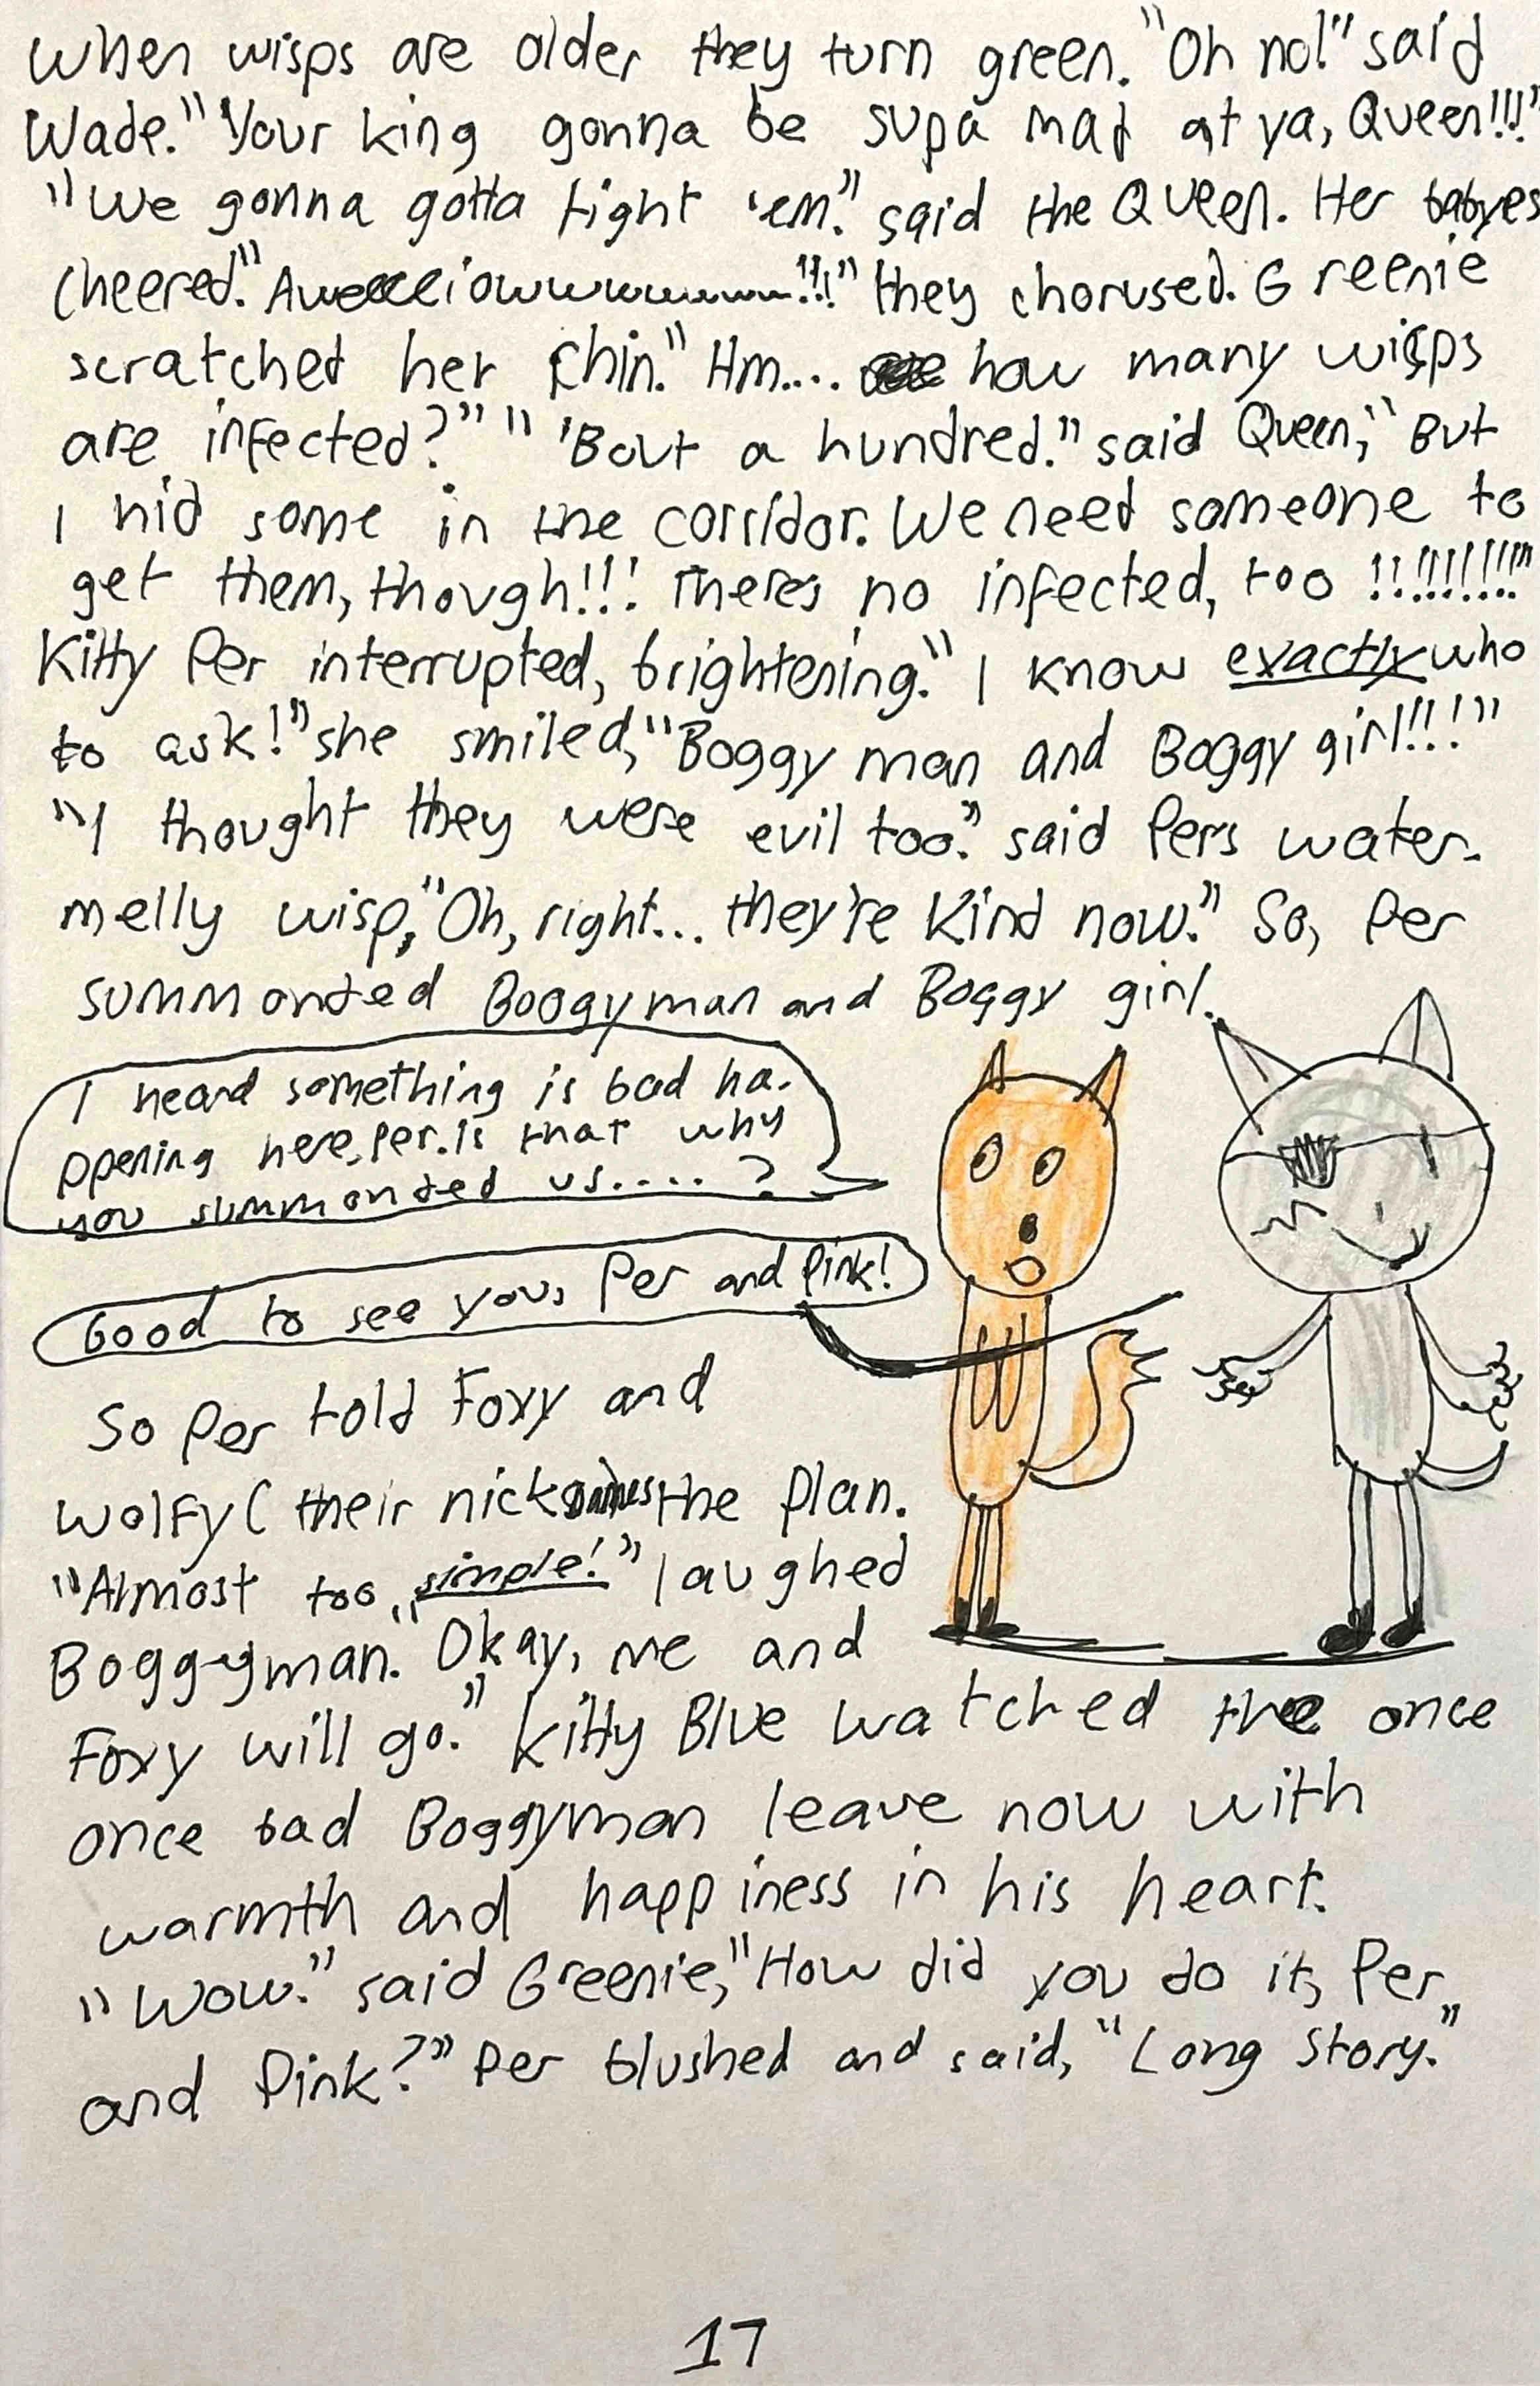 When wisps are older they turn green. "Oh no!" said
Wade. "Your king gonna be supa mad at ya, Queen!!!"
"We gonna gotta fight 'em." said the Queen. Her babyes
cheered. "Aweeeeiowwwwwwww!!!" they chorused. Greenie
scratched her chin. "Hm.... how many wisps
are infected?" " 'Bout a hundred." said Queen, "But
I hid some in the corridor. We need someone to
get them, though!!! Theres no infected, too !!!!!!!!!!"
Kitty Per interrupted, brightening. "I know exactly who
to ask!" she smiled, "Boggy man and Boggy girl!!!"
"I thought they were evil too." said Pers water-
melly wisp, "Oh, right... they're kind now." So, Per
summonded Boogyman and Boggy girl.
I heard something is bad ha-
ppening here, Per. Is that why
you summonded us..... ?
Good to see you, Per and Pink!
So Per told Foxy and
Wolfy ( their nicknames the plan.
"Almost too simple!" laughed
Boggyman. "Okay, me and
Foxy will go." Kitty Blue watched the once
once bad Boggyman leave now with
warmth and happiness in his heart.
"Wow." said Greenie, "How did you do it, Per
and Pink?" Per blushed and said, "Long story."
17